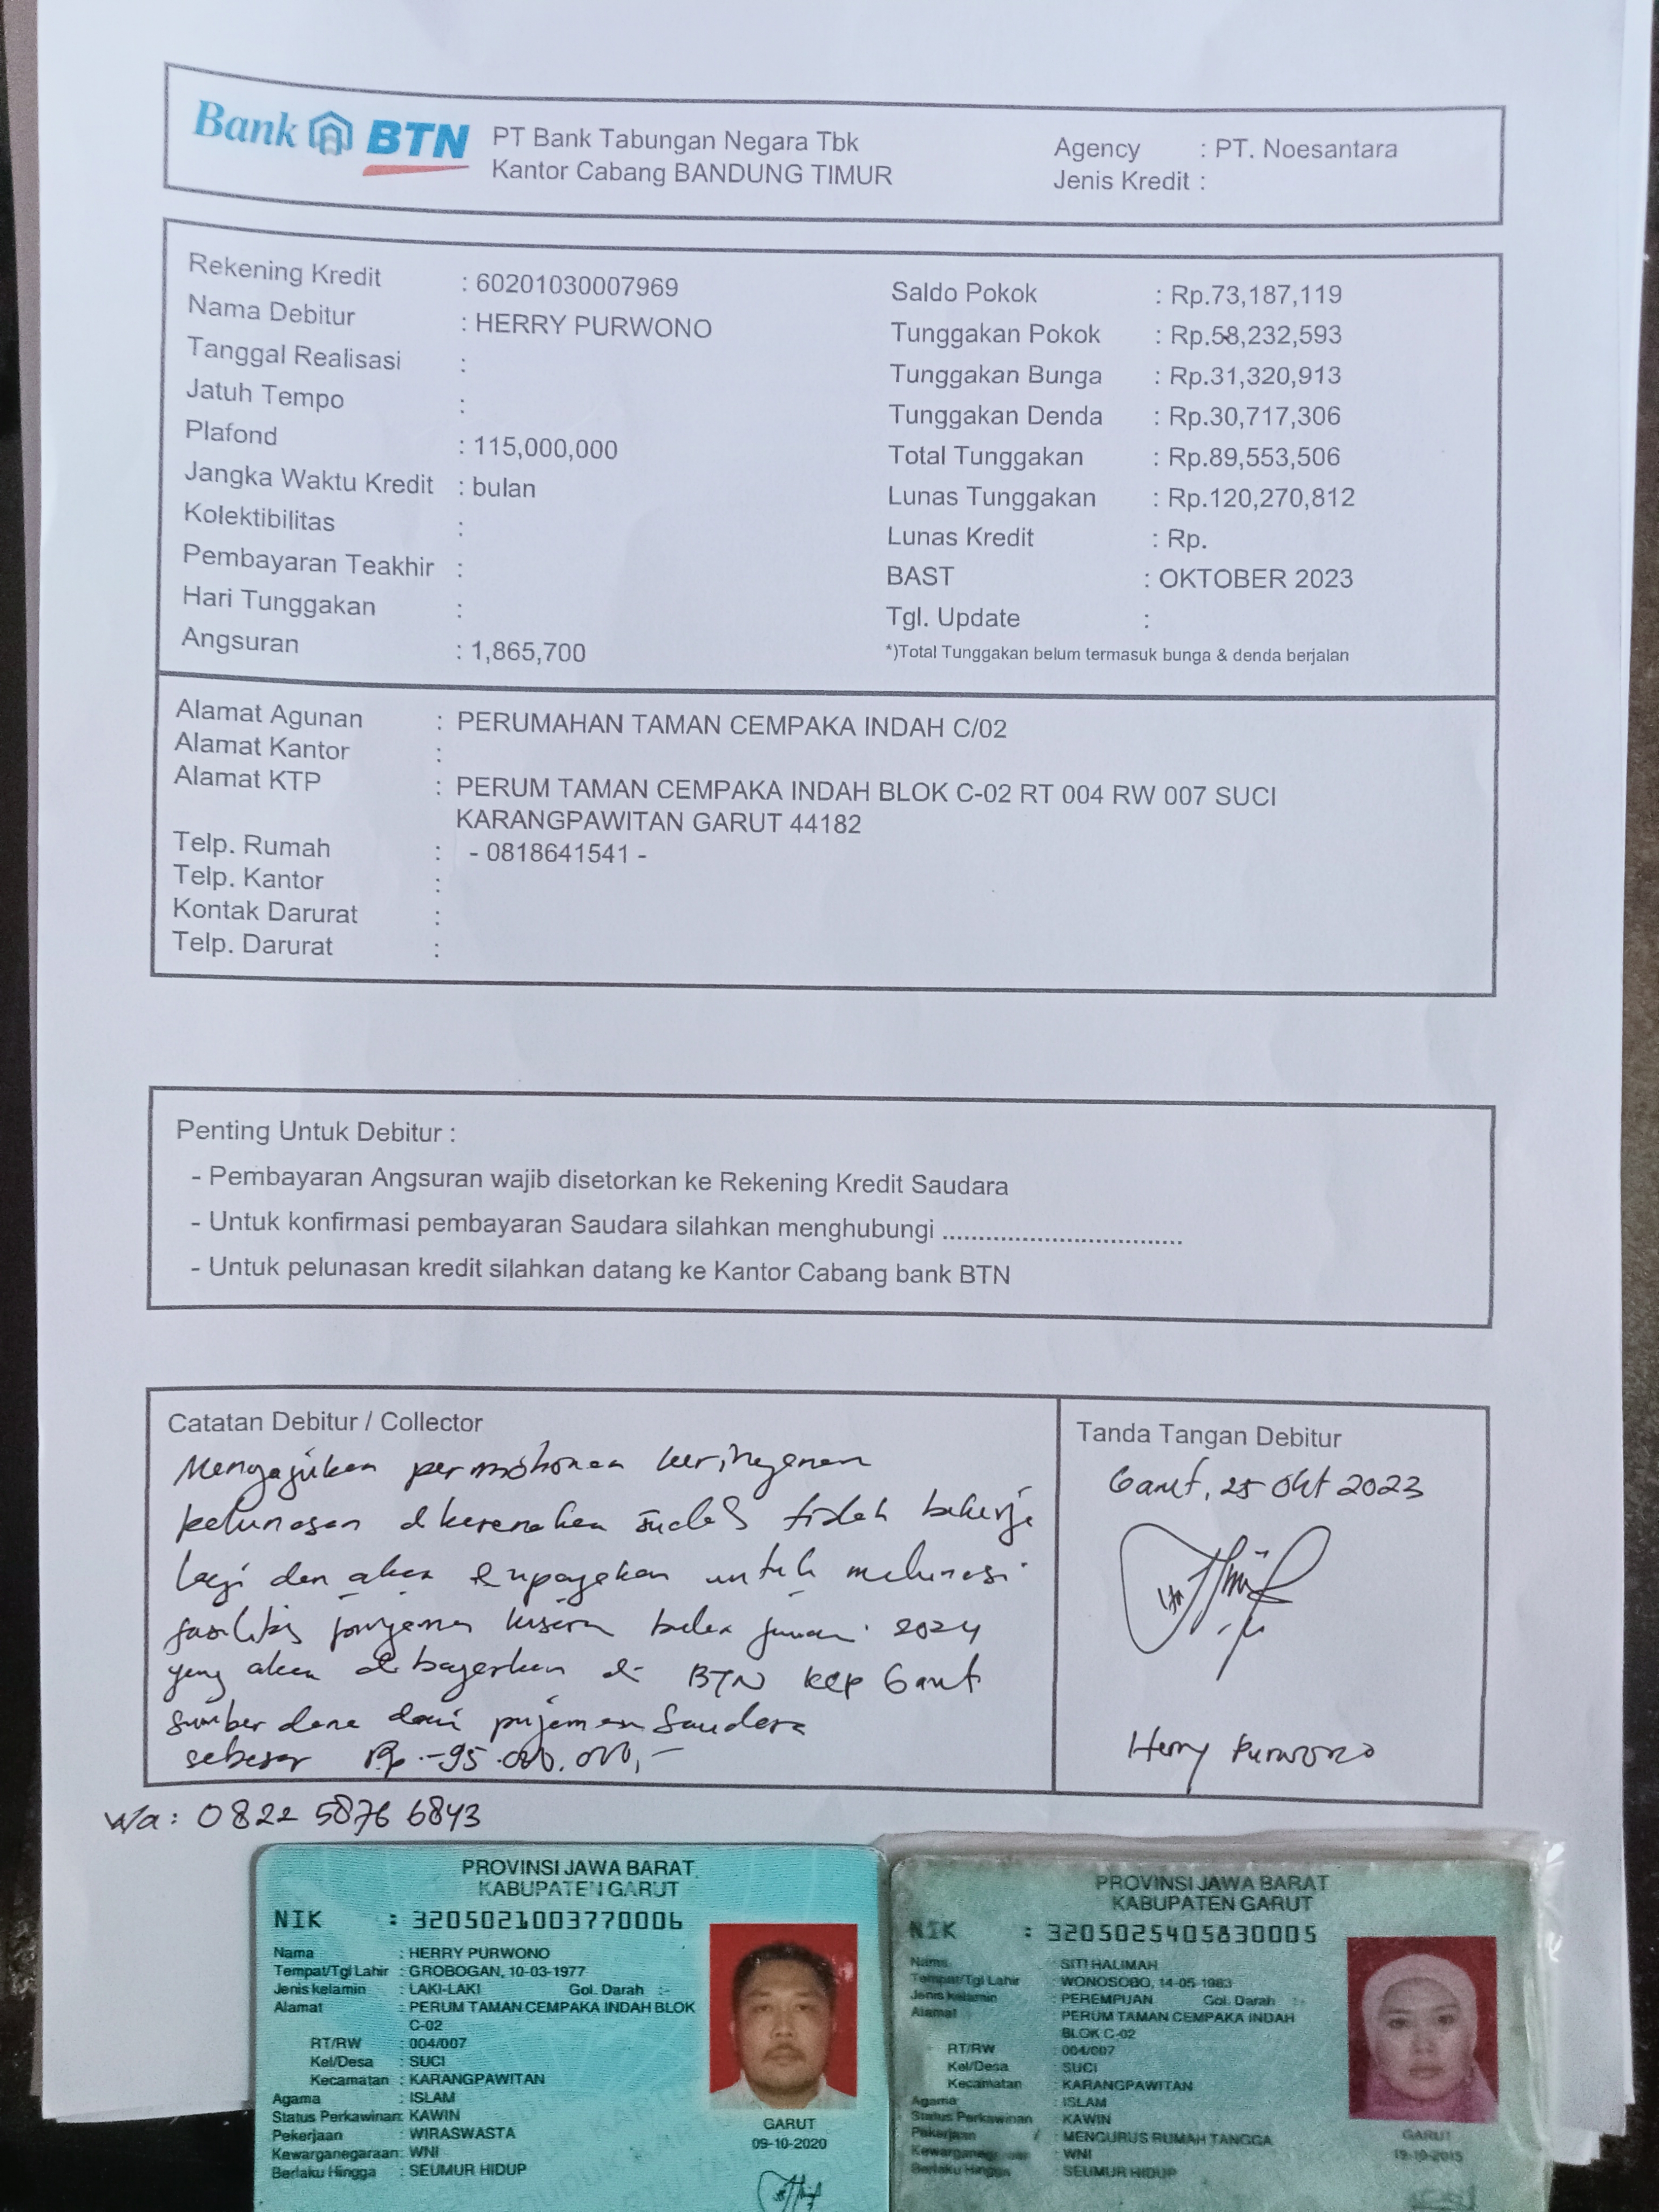 Bank BTN
PT Bank Tabungan Negara Tbk
Kantor Cabang BANDUNG TIMUR
Agency : PT. Noesantara
Jenis Kredit :
Rekening Kredit : 60201030007969
Nama Debitur : HERRY PURWONO
Tanggal Realisasi :
Jatuh Tempo :
Plafond : 115,000,000
Jangka Waktu Kredit : bulan
Kolektibilitas :
Pembayaran Teakhir :
Hari Tunggakan :
Angsuran : 1,865,700
Saldo Pokok : Rp.73,187,119
Tunggakan Pokok : Rp.58,232,593
Tunggakan Bunga : Rp.31,320,913
Tunggakan Denda : Rp.30,717,306
Total Tunggakan : Rp.89,553,506
Lunas Tunggakan : Rp.120,270,812
Lunas Kredit : Rp.
BAST : OKTOBER 2023
Tgl. Update :
*)Total Tunggakan belum termasuk bunga & denda berjalan
Alamat Agunan : PERUMAHAN TAMAN CEMPAKA INDAH C/02
Alamat Kantor :
Alamat KTP : PERUM TAMAN CEMPAKA INDAH BLOK C-02 RT 004 RW 007 SUCI
KARANGPAWITAN GARUT 44182
Telp. Rumah : - 0818641541 -
Telp. Kantor :
Kontak Darurat :
Telp. Darurat :
Penting Untuk Debitur :
- Pembayaran Angsuran wajib disetorkan ke Rekening Kredit Saudara
- Untuk konfirmasi pembayaran Saudara silahkan menghubungi ..................................
- Untuk pelunasan kredit silahkan datang ke Kantor Cabang bank BTN
Catatan Debitur / Collector
Mengajukan permohonan keringanan
pelunasan dikarenakan sudah tidak bekerja
lagi dan akan diupayakan untuk melunasi
fasilitas pinjaman bulan Januari 2024
yang akan dibayarkan di BTN KCP Garut
sumber dana dari pinjaman Saudara
sebesar Rp. 95.000.000,-
Tanda Tangan Debitur
Garut, 25 Okt 2023
Herry Purwono
Wa : 0822 5876 6843
PROVINSI JAWA BARAT
KABUPATEN GARUT
NIK : 3205021003770006
Nama : HERRY PURWONO
Tempat/Tgl Lahir : GROBOGAN, 10-03-1977
Jenis kelamin : LAKI-LAKI Gol. Darah :-
Alamat : PERUM TAMAN CEMPAKA INDAH BLOK
C-02
RT/RW : 004/007
Kel/Desa : SUCI
Kecamatan : KARANGPAWITAN
Agama : ISLAM
Status Perkawinan: KAWIN
Pekerjaan : WIRASWASTA
Kewarganegaraan: WNI
Berlaku Hingga : SEUMUR HIDUP
GARUT
09-10-2020
PROVINSI JAWA BARAT
KABUPATEN GARUT
NIK : 3205025405830005
Nama : SITI HALIMAH
Tempat/Tgl Lahir : WONOSOBO, 14-05-1983
Jenis kelamin : PEREMPUAN Gol. Darah :-
Alamat : PERUM TAMAN CEMPAKA INDAH
BLOK C-02
RT/RW : 004/007
Kel/Desa : SUCI
Kecamatan : KARANGPAWITAN
Agama : ISLAM
Status Perkawinan : KAWIN
Pekerjaan : MENGURUS RUMAH TANGGA
: WNI
Berlaku Hingga : SEUMUR HIDUP
GARUT
19-10-2015